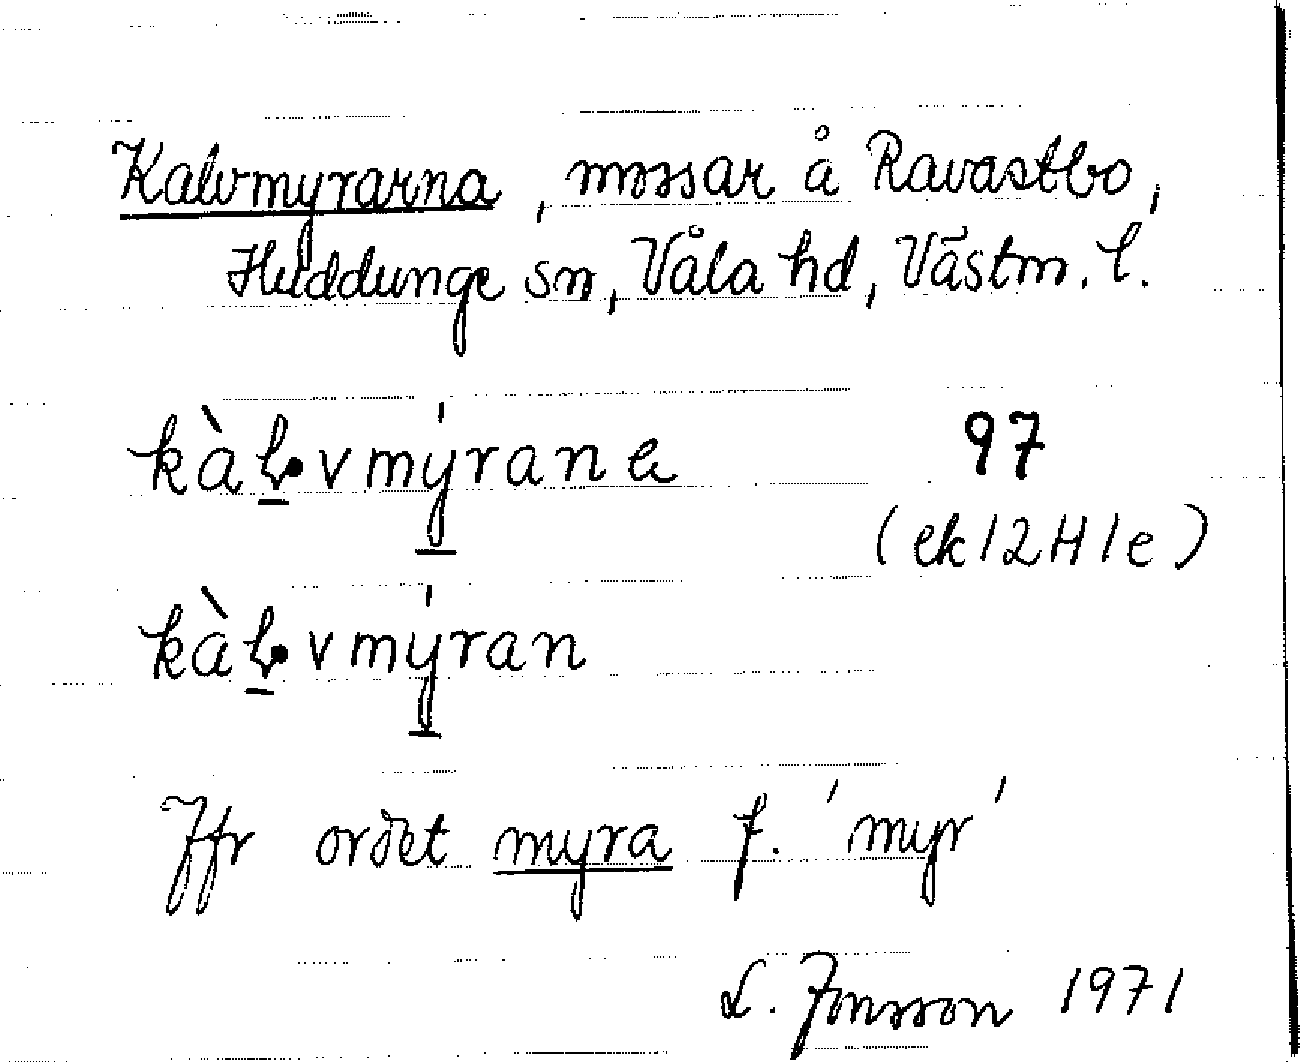 Kalvmyrarna, mossar å Ravastbo,
Huddunge sn, Våla hd, Västm. l.
kàḷvmýrane 97
(ek 12H1e)
kàḷvmýran
Jfr ordet myra f. 'myr'
L. Jonsson 1971